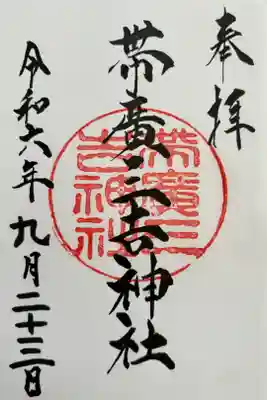 奉拝
帯廣三吉神社
帯廣三
吉神社
令和六年九月二十三日